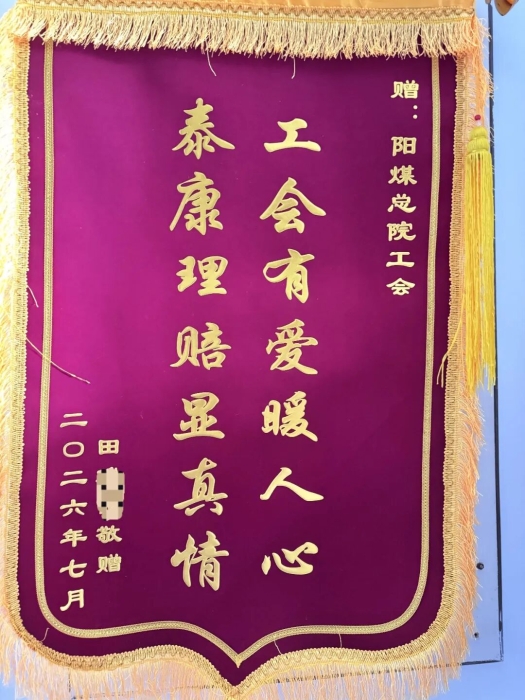 赠：阳煤总院工会
工会有爱暖人心
泰康理赔显真情
田敬赠
二〇二六年七月